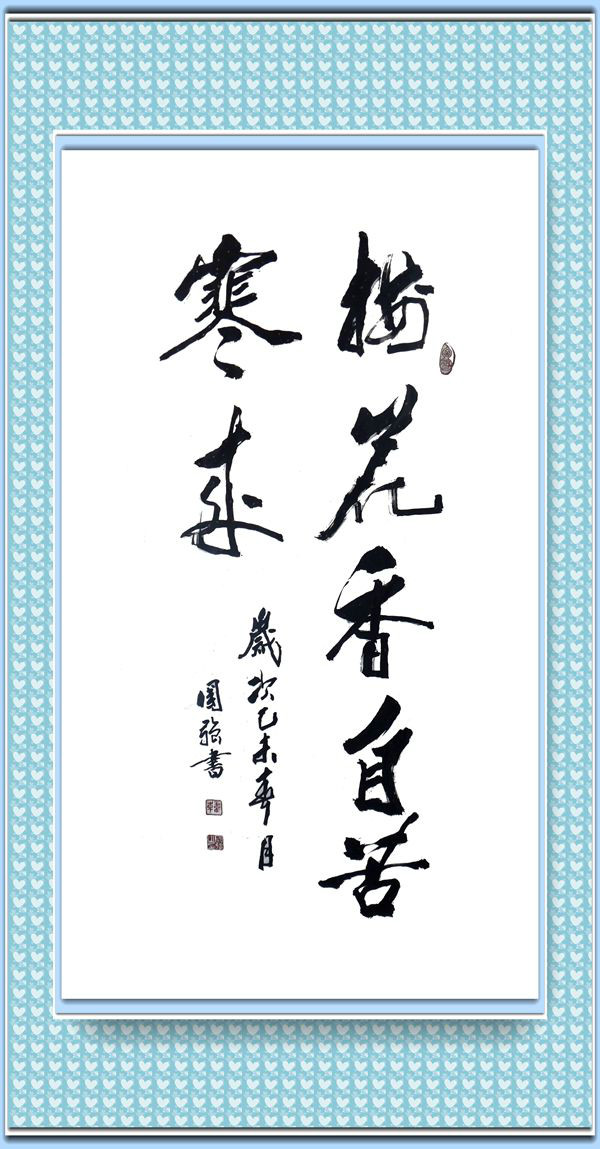 梅花香自苦
寒来
歲次乙未春月
國强書